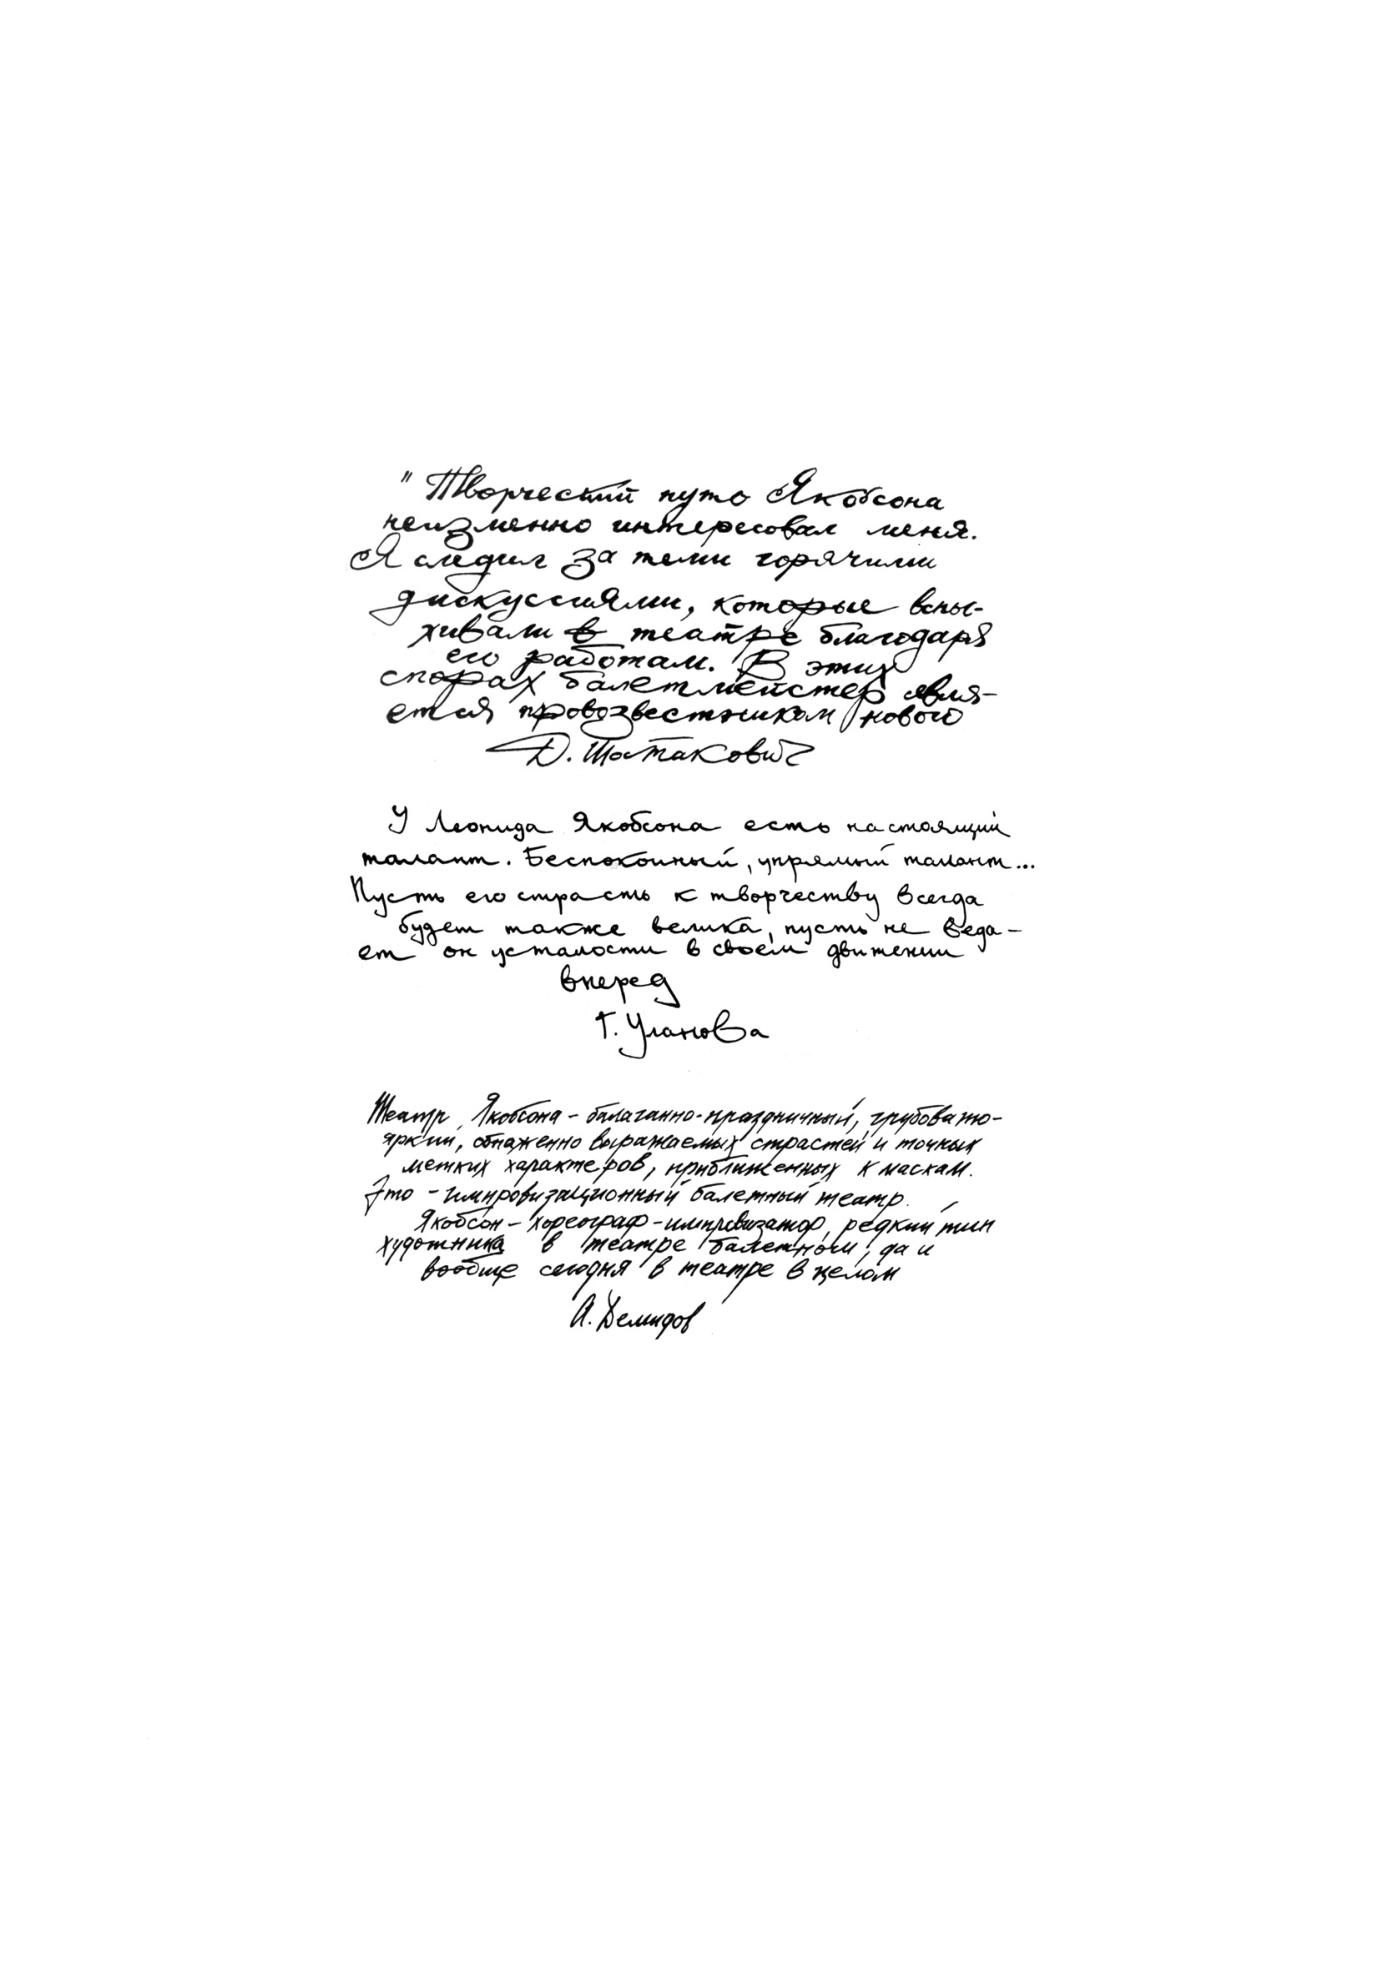 "Творческий путь Якобсона
неизменно интересовал меня.
Я следил за теми горячими
дискуссиями, которые вспы-
хивали в театре благодаря
его работам. В этих
спорах балетмейстер явля-
ется провозвестником нового
Д. Шостакович
У Леонида Якобсона есть настоящий
талант. Беспокойный, упрямый талант...
Пусть его страсть к творчеству всегда
будет также велика, пусть не веда-
ет он усталости в своем движении
вперед
Г. Уланова
Театр Якобсона - балаганно-праздничный, грубовато-
яркий, обнаженно выражаемых страстей и точных
метких характеров, приближенных к маскам.
Это - импровизационный балетный театр.
Якобсон - хореограф-импровизатор, редкий тип
художника в театре балетном, да и
вообще сегодня в театре в целом
А. Демидов